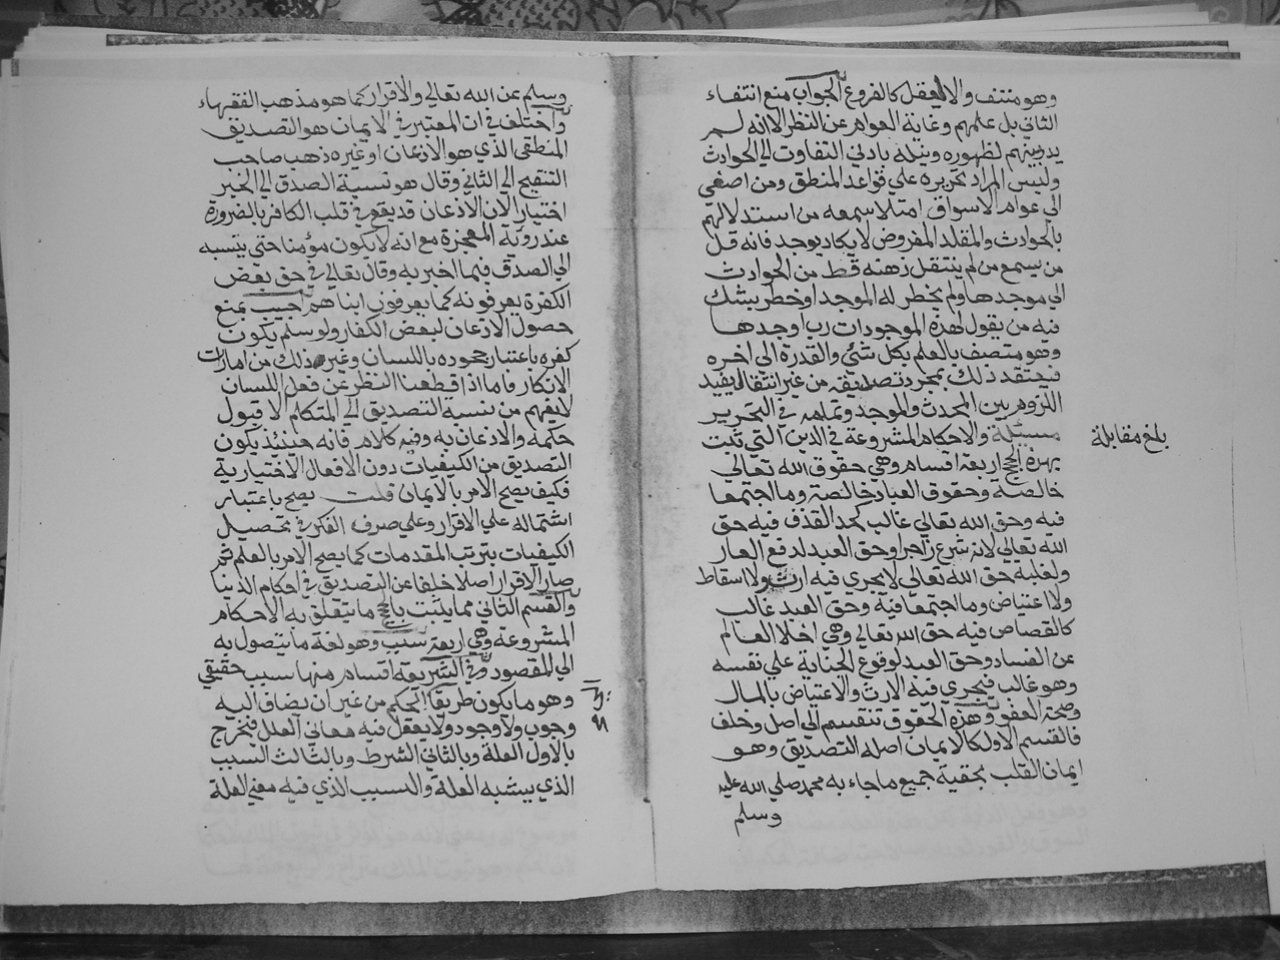 وهو منتف والا لغفل كالفروع الجواب منع انتفاء
الثاني بل علمهم وغاية العوام عن النظر الا انه لم
يدر بينهم لظهوره ونيله بادني التفاوت الي الحوادث
وليس المراد تحريره علي قواعد المنطق ومن اصغي
الي عوام الاسواق امتلا سمعه من استدلالهم
بالحوادث والمقلد المفروض لا يكاد يوجد فانه قل
من يسمع من لم ينتقل ذهنه قط من الحوادث
الي موجدها ولم يخطر له الموجد او خطر بشك
فيه من يقول لهذه الموجودات رب اوجدها
وهو متصف بالعلم بكل شئ والقدرة الي اخره
فيعتقد ذلك بمجرد تصديقه من غير انتقال يفيد
اللزوم بين المحدث والموجد وتمامه في التحرير
مسئلة والاحكام المشروعة في الدين التي تثبت
بهذه الحجج اربعة اقسام وهي حقوق الله تعالي
خالصة وحقوق العباد خالصة وما اجتمعا
فيه وحق الله تعالي غالب كحد القذف فيه حق
الله تعالي لانه شرع زاجرا وحق العبد لدفع العار
ولغلبة حق الله تعالي لا يجري فيه ارث ولا اسقاط
ولا اعتياض وما اجتمعا فيه وحق العبد غالب
كالقصاص فيه حق الله تعالي وهي اخلا العالم
عن الفساد وحق العبد لوقوع الجناية علي نفسه
وهو غالب فيجري فيه الارث والاعتياض بالمال
وصحة العفو وهذه الحقوق تنقسم الي اصل وخلف
فالقسم الاول كالايمان اصله التصديق وهو
ايمان القلب بحقية جميع ما جاء به محمد صلي الله عليه
وسلم
بلغ مقابلة
وسلم عن الله تعالي والاقرار كما هو مذهب الفقهاء
واختلف في ان المعتبر في الايمان هو التصديق
المنطقي الذي هو الاذعان او غيره ذهب صاحب
التنقيح الي الثاني وقال هو نسبة الصدق الي الخبر
اختيارا لان الاذعان قد يقع في قلب الكافر بالضرورة
عند روية المعجزة مع انه لا يكون مؤمنا حتي ينسبه
الي الصدق فيما اخبر به وقال تعالي في حق بعض
الكفرة يعرفونه كما يعرفون ابناهم اجيب بمنع
حصول الاذعان لبعض الكفار ولو سلم يكون
كفره باعتبار جحوده باللسان وغير ذلك من امارات
الانكار فاما اذا قطعنا النظر عن فعل اللسان
لا يفهم من نسبة التصديق الي المتكلم الا قبول
حكمه والاذعان به وفيه كلام فانه حينئذ يكون
التصديق من الكيفيات دون الافعال الاختيارية
فكيف يصح الامر بالايمان قلت يصح باعتبار
اشتماله علي الاقرار وعلي صرف الفكر في تحصيل
الكيفيات بترتب المقدمات كما يصح الامر بالعلم ثم
صار الاقرار اصلا خلفا عن التصديق في احكام الدنيا
والقسم الثاني مما يثبت بالحجج ما يتعلق به الاحكام
المشروعة وهي اربعة سبب وهو لغة ما يتصول به
الي المقصود وفي الشريعة اقسام منها سبب حقيقي
وهو ما يكون طريقا الي الحكم من غير ان يضاف اليه
وجوب ولا وجود ولا يعقل فيه معاني العلل فخرج
بالاول العلة وبالثاني الشرط وبالثالث السبب
الذي يشبه العلة والسبب الذي فيه معني العلة